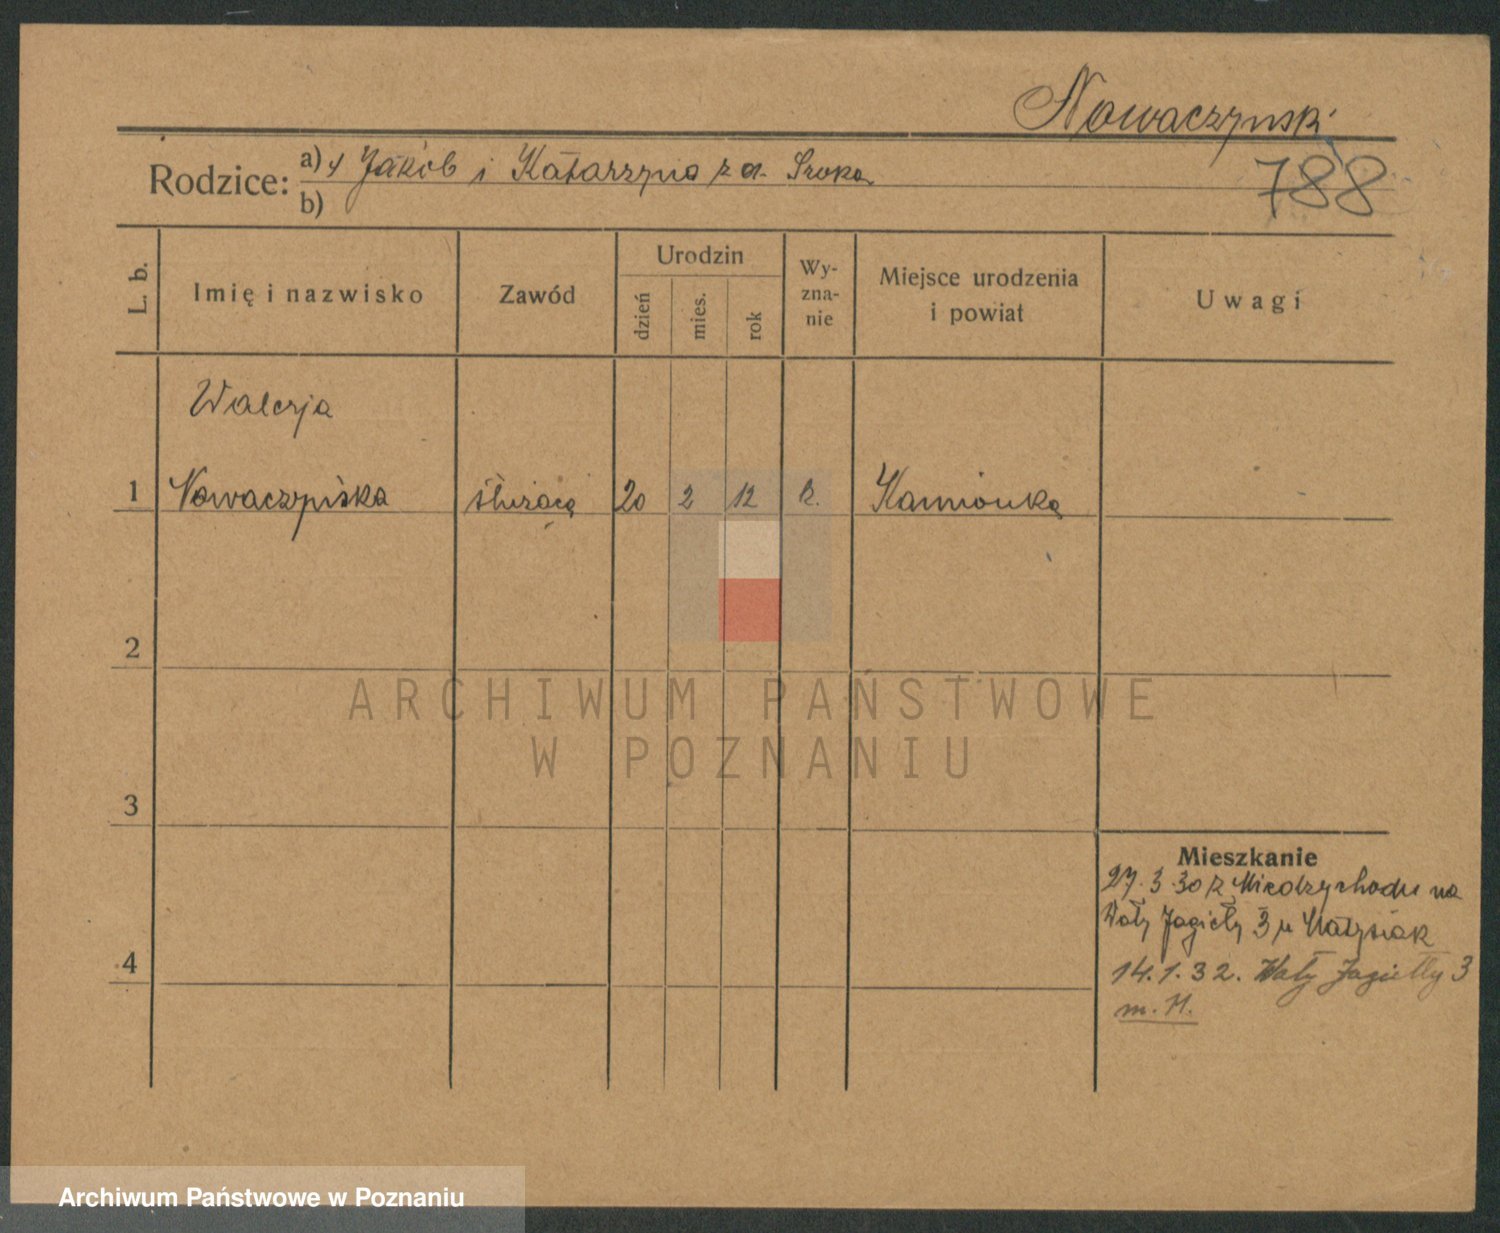 Nowaczynski
788
Rodzice: a) Jakób i Katarzyna z d. Sroka
b)
L. b.
Imię i nazwisko
Zawód
Urodzin
dzień
mies.
rok
Wy-
zna-
nie
Miejsce urodzenia
i powiat
Uwagi
Walerja
1 Nowaczyńska służąca 20 2 12 R. Kamionka
2
ARCHIWUM PAŃSTWOWE
W POZNANIU
3
Mieszkanie
27.3.30 z Miedzychodu na
Wały Jagiełły 3 u Matysiak
4
14.1.32. Wały Jagiełły 3
m. 11.
Archiwum Państwowe w Poznaniu